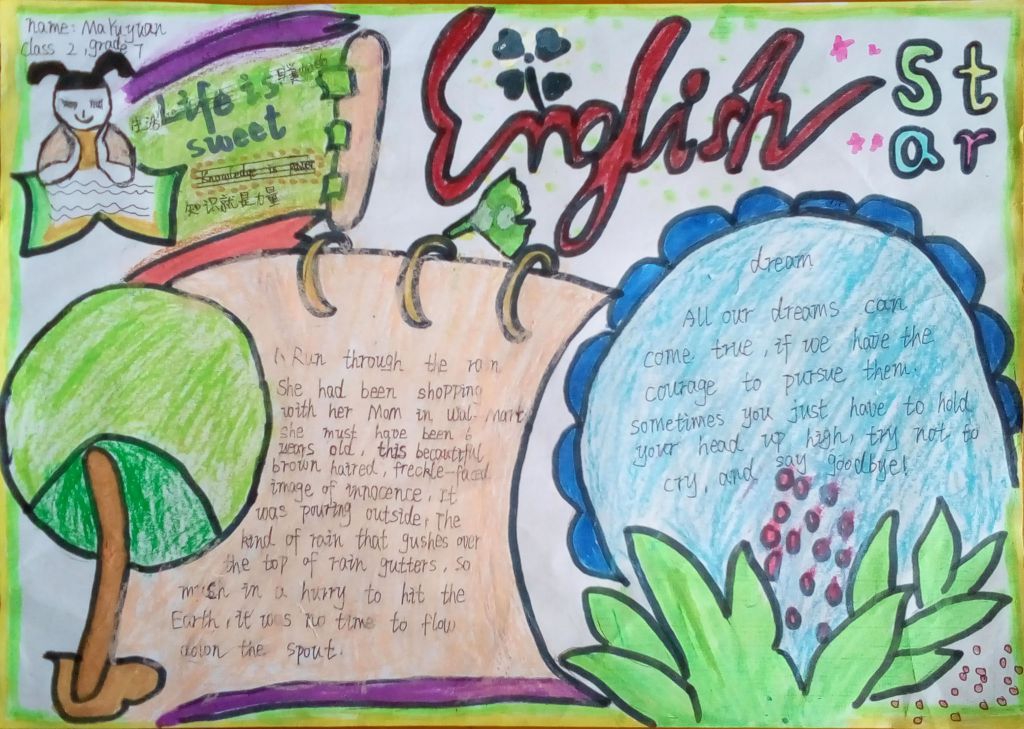 name: Ma Kuyuan
class 2, grade 7
Life is
生活
sweet
Knowledge is power
知识就是力量
English
St
ar
1、Run through the rain
She had been shopping
with her Mom in Wal-Mart
She must have been 6
years old, this beautiful
brown haired, freckle-faced
image of innocence, it
was pouring outside, The
kind of rain that gushes over
the top of rain gutters, so
much in a hurry to hit the
Earth, it was no time to flow
down the spout.
dream
All our dreams can
come true, if we have the
courage to pursue them.
sometimes you just have to hold
your head up high, try not to
cry, and say goodbye!